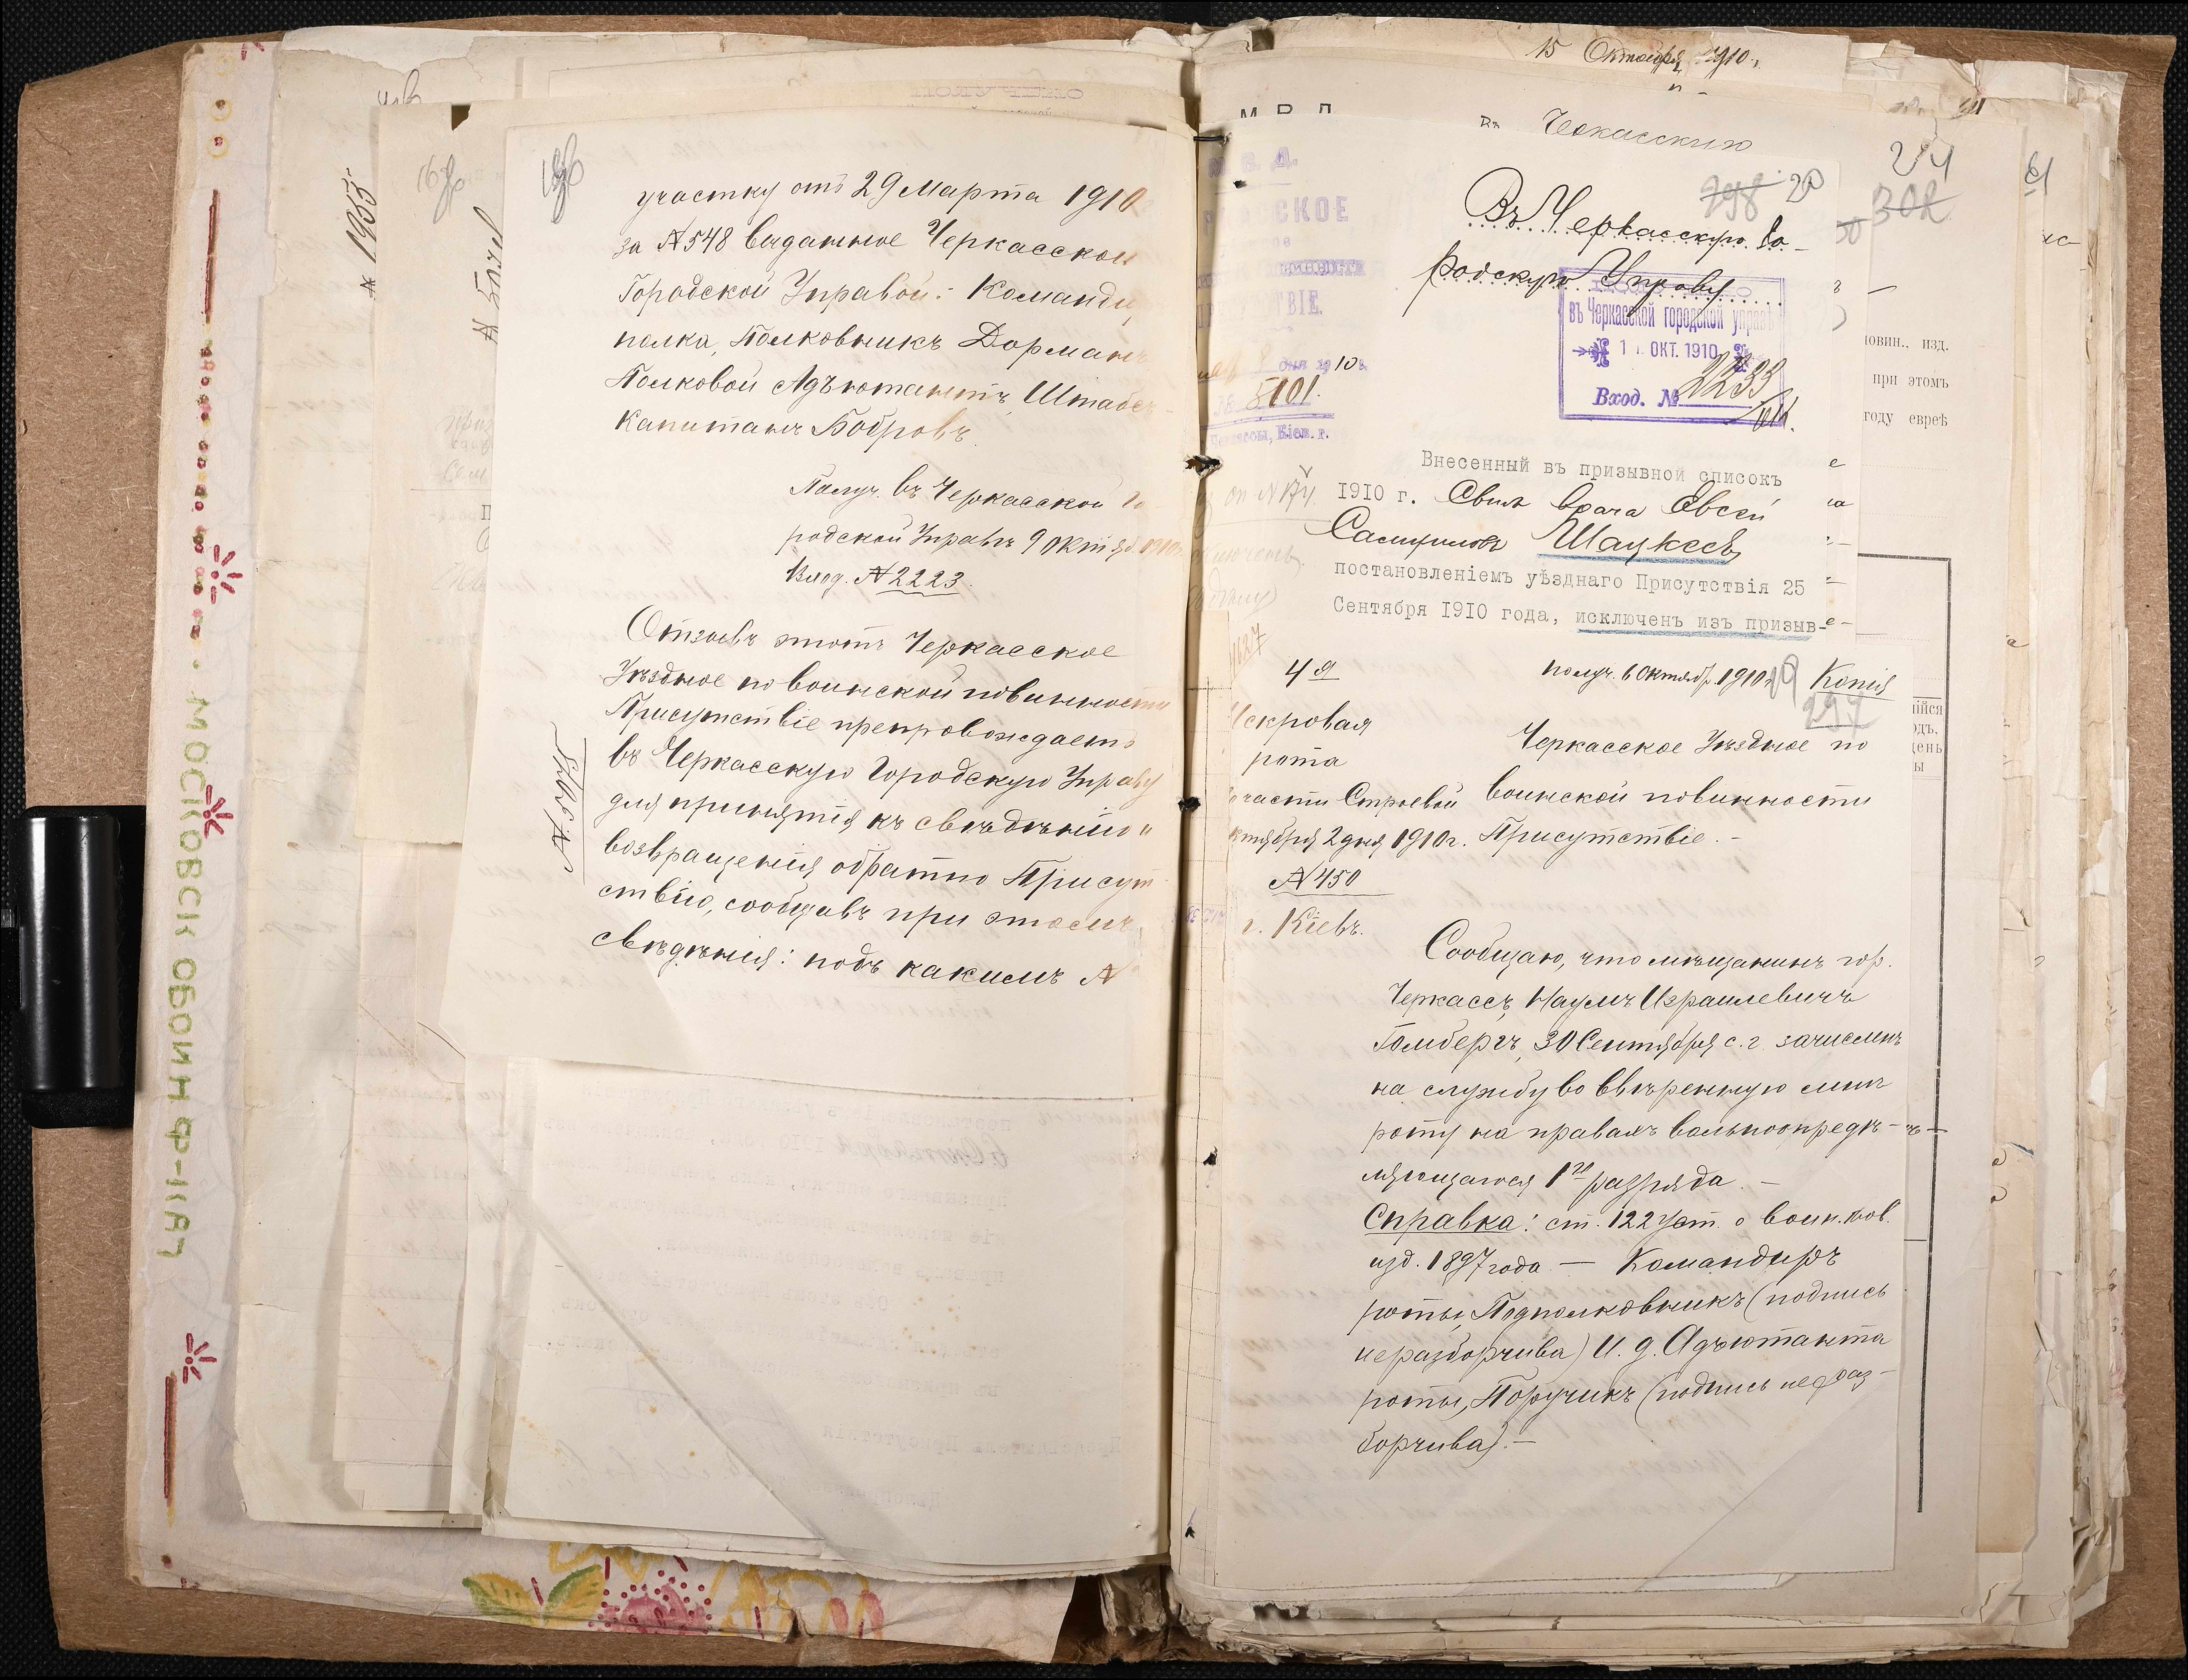 участку отъ 29 Марта 1910
за №548 выданное Черкасской
Городской Управой: Команди
полка, Полковникъ Дорман
Полковой Адъютантъ, Штабсъ-
Капитанъ Бобровъ.
Получ. въ Черкасской Го
родской Управѣ 9 Октяб 1910г.
Вход. №2223.
Отзывъ этотъ Черкасское
Уѣздное по воинской повинности
Присутствіе препровождаетъ
въ Черкасскую Городскую Управу
для принятія къ свѣдѣнію и
возвращенія обратно Присут-
ствію, сообщавъ при этомъ
свѣдѣнія: подъ какимъ №
№ 5078
№ 1955
МОСКОВСК ОБОИН Ф-КАЯ
15 Октября 1910 г.
М В Д
Въ Черкасскую
24
302
298 20
Въ Черкасскую Го-
родскую Управу
въ Черкасской городской управѣ
1 ОКТ. 1910
Вход. № 2233
1910 г.
№ 5101.
Черкассы, Кіев. г.
Внесенный въ призывной списокъ
1910 г. Сынъ врача Овсей
Самуиловъ Шацкесъ
постановленіемъ уѣзднаго Присутствія 25
Сентября 1910 года, исключенъ изъ призыв-
повин.. изд.
при этомъ
году еврѣ
4я
Искровая
рота
По части Строевой
Октября 2 дня 1910г.
№450
г. Кіевъ.
получ. 6 Октяб. 1910г. 19 Копія
297
Черкасское Уѣздное по
воинской повинности
Присутствіе. –
Сообщаю, что мѣщанинъ гор.
Черкассъ, Наумъ Израилевичъ
Гомбергъ, 30 Сентября с.г. зачисленъ
на службу во ввѣренную мнѣ
роту на правахъ вольноопредѣ-
ляющагося 1го разряда. –
Справка: ст. 122 Уст. о воин. пов.
изд. 1897 года – Командиръ
роты, Подполковникъ (подпись
неразборчива) И. д. Адъютанта
роты, Поручикъ (подпись нераз-
борчива). –